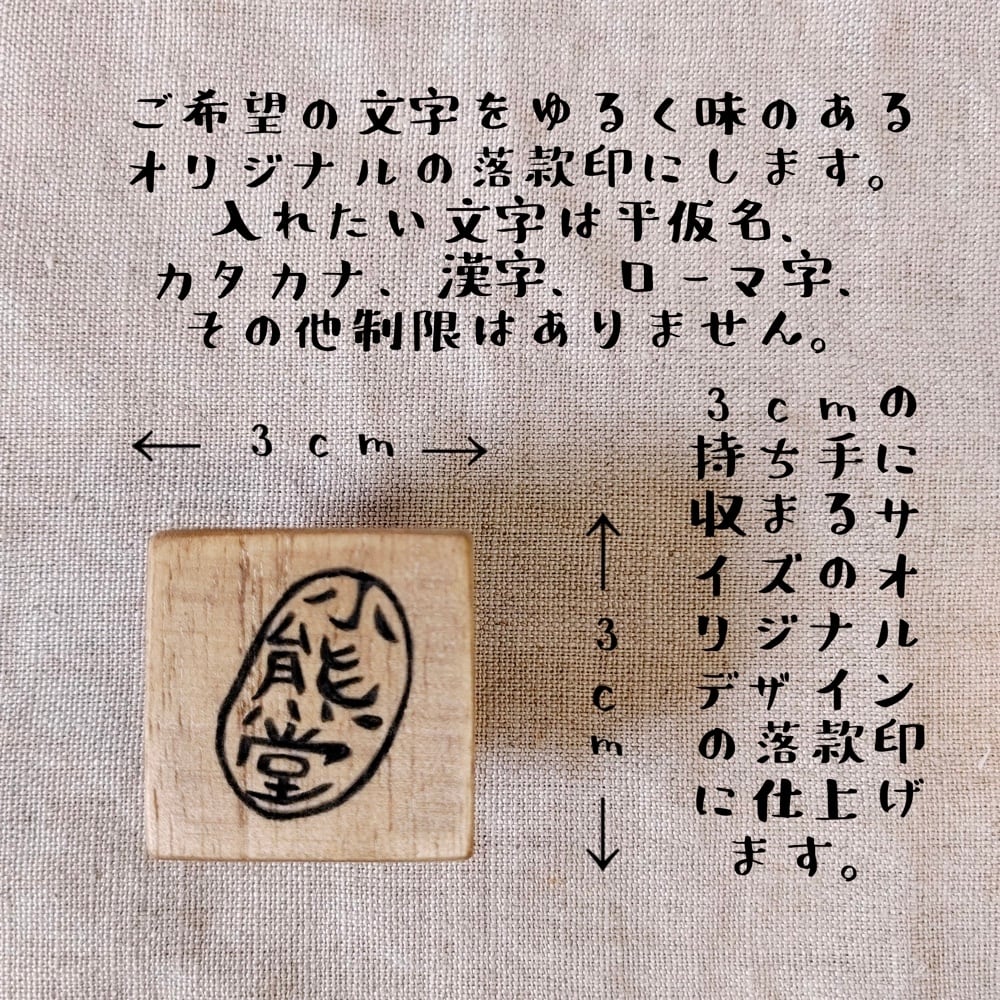 ご希望の文字をゆるく味のある
オリジナルの落款印にします。
入れたい文字は平仮名、
カタカナ、漢字、ローマ字、
その他制限はありません。
← 3cm →
↑
3
c
m
↓
3cmの
持ち手に
収まるサ
イズのオ
リジナル
デザイン
の落款印
に仕上げ
ます。
小
熊
堂